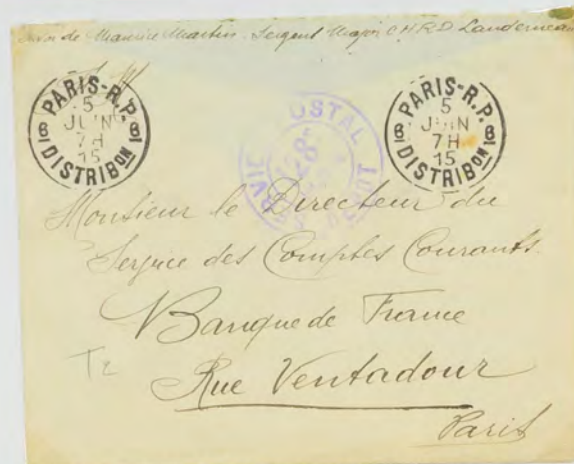 de Maurice Martin. Sergent Major C.H.R.D Landerneau
PARIS-R.P.
5
JUIN
7H
15
8 8
DISTRIBON
SERVICE POSTAL
28e
DÉPÔT
PARIS-R.P.
5
JUIN
7H
15
8 8
DISTRIBON
Monsieur le Directeur du
Service des Comptes Courants.
Banque de France
Rue Ventadour
Paris
T2